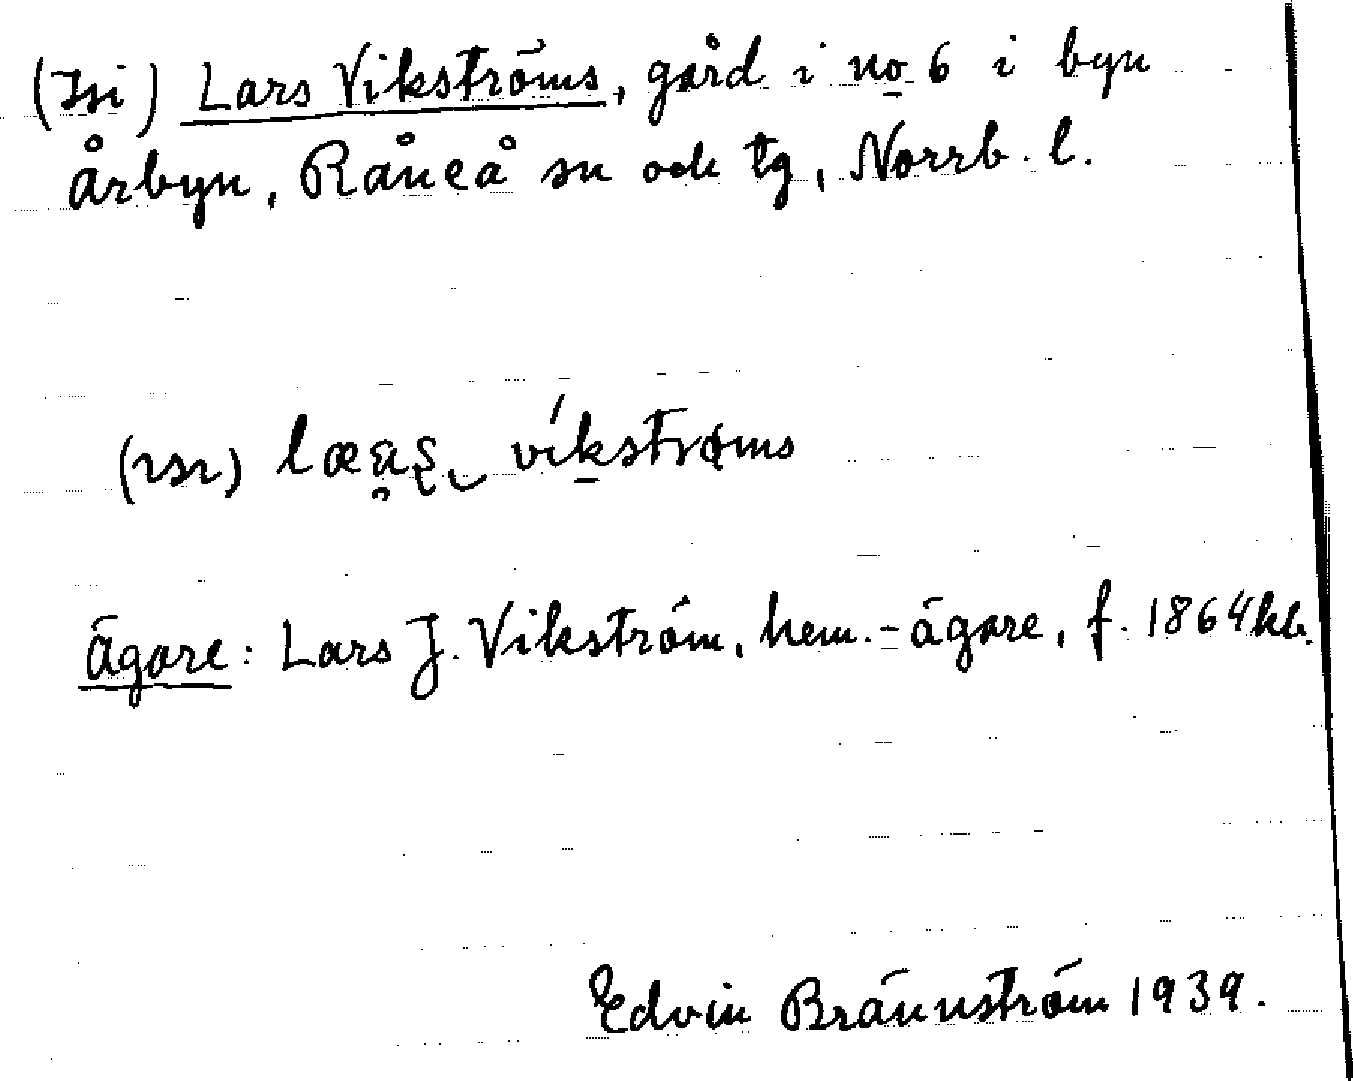 Lars Vikströms, gård i no 6 i byn
Årbyn, Råneå sn och tg, Norrb. l.
víkstrøms
ägare: Lars J. Vikström, hem.-ägare, f. 1864 kb.
Edvin Brännström 1939.